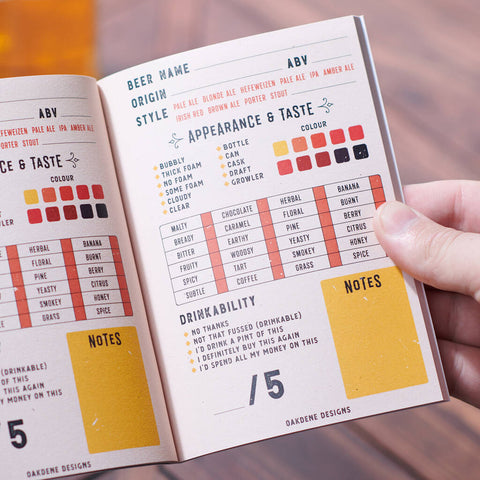 ABV
HEFEWEIZEN PALE ALE IPA AMBER ALE
PORTER STOUT
CE & TASTE
COLOUR
HERBAL BANANA
FLORAL BURNT
PINE BERRY
YEASTY CITRUS
SMOKEY HONEY
GRASS SPICE
NOTES
(DRINKABLE)
OF THIS
THIS AGAIN
MY MONEY ON THIS
5
OAKDENE DESIGNS
BEER NAME
ORIGIN ABV
STYLE PALE ALE BLONDE ALE HEFEWEIZEN PALE ALE IPA AMBER ALE
IRISH RED BROWN ALE PORTER STOUT
APPEARANCE & TASTE
BUBBLY
THICK FOAM
NO FOAM
SOME FOAM
CLOUDY
CLEAR
BOTTLE
CAN
CASK
DRAFT
GROWLER
COLOUR
MALTY CHOCOLATE HERBAL BANANA
BREADY CARAMEL FLORAL BURNT
BITTER EARTHY PINE BERRY
FRUITY WOODSY YEASTY CITRUS
SPICY TART SMOKEY HONEY
SUBTLE COFFEE GRASS SPICE
DRINKABILITY
NO THANKS
NOT THAT FUSSED (DRINKABLE)
I'D DRINK A PINT OF THIS
I DEFINITELY BUY THIS AGAIN
I'D SPEND ALL MY MONEY ON THIS
NOTES
/5
OAKDENE DESIGNS